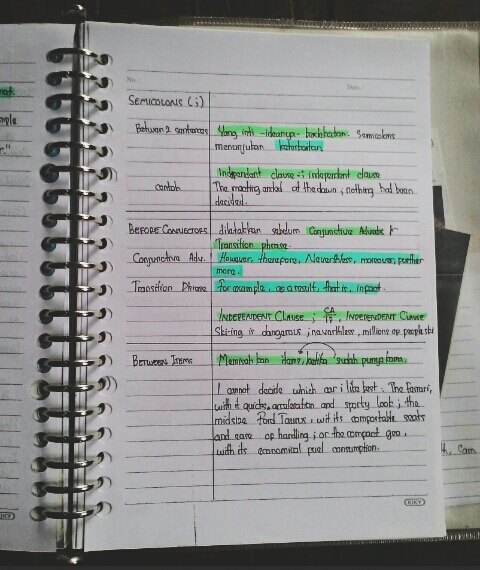 No.
Date.
SEMICOLONS (;)
Between 2 sentences
Yang inti-ideanya berdekatan. Semicolons
menunjukan keterkaitan.
Independent clause ; independent clause
contoh
The meeting ended at the dawn ; nothing had been
decided.
BEFORE CONNECTORS
diletakkan sebelum Conjunctive Adverbs &
Transition phrase.
Conjunctive Adv.
However, therefore, Neverthless, moreover, further
more.
Transition Phrase
For example, as a result, that is, in pact.
INDEPENDENT CLAUSE ; CA
TP, INDEPENDENT CLAUSE
Ski-ing is dangerous ; neverthless, millions op people ski
BETWEEN ITEMS
Memisahkan items, ketika sudah punya koma.
I cannot decide which car i like best : The Ferrari,
with it quicks acceleration and sporty look ; the
midsize Ford Taurus, wit its comportable seats
and ease op handling ; or the compact geo,
with its economical puel consumption.
KIKY
KIKY